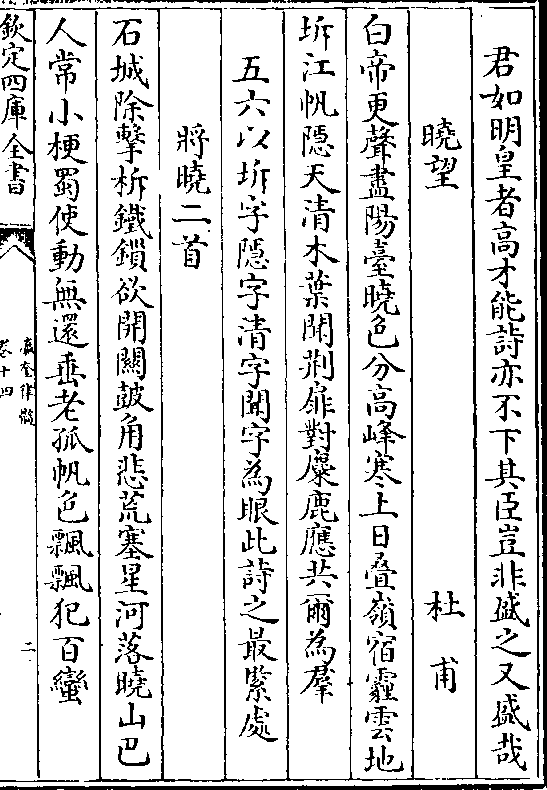 君如明皇者高才能詩亦不下其臣豈非盛之又盛哉
曉望 杜甫
白帝更聲盡陽臺曉色分高峰寒上日疊嶺宿霾雲地
坼江帆隱天清木葉聞荆扉對麋鹿應共爾為羣
五六以坼字隱字清字聞字為眼此詩之最緊處
將曉二首
石城除擊柝鐵鎖欲開關鼓角悲荒塞星河落曉山巴
人常小梗蜀使動無還垂老孤帆色飄飄犯百蠻
欽定四庫全書
瀛奎律髓
卷十四
二